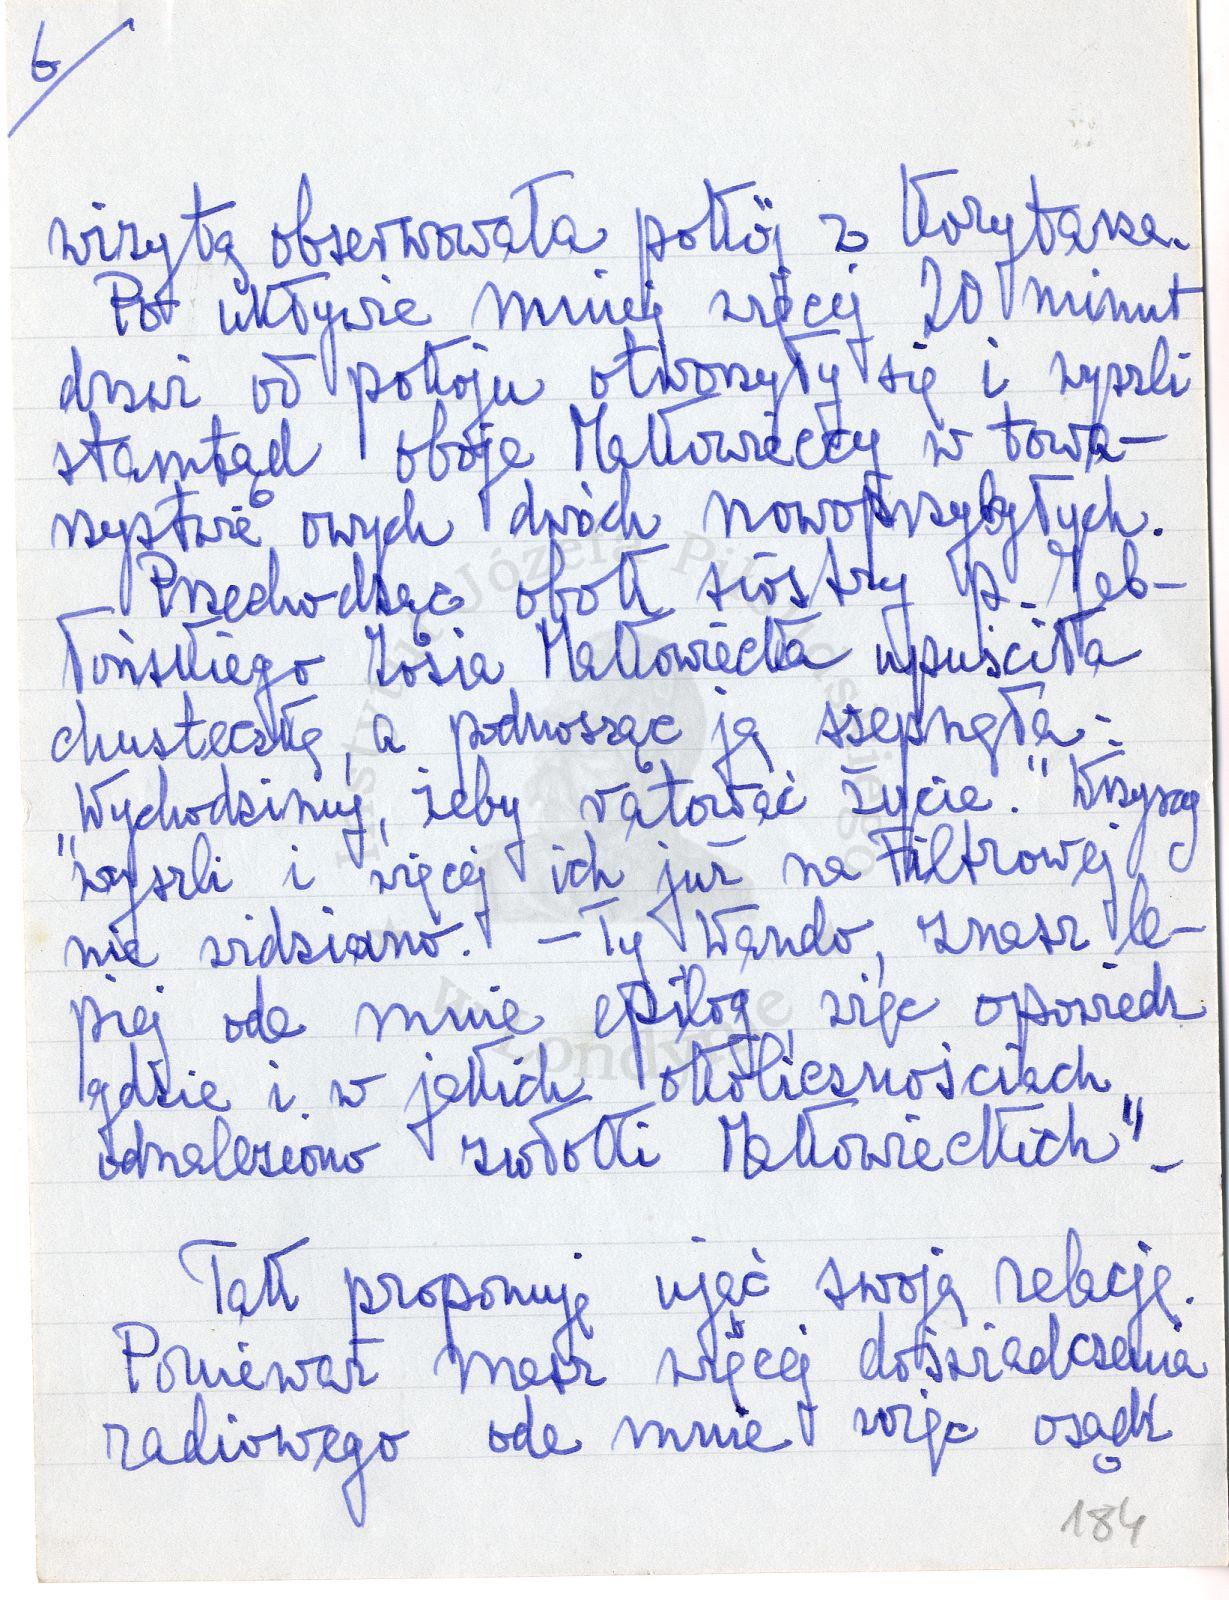 6
wizytą obserwowała pokój z korytarza.
Po upływie mniej więcej 20 minut
drzwi od pokoju otworzyły się i wyszli
stamtąd oboje Makowieccy w towa-
rzystwie owych dwóch nowoprzybyłych.
Przechodząc obok siostry p. Jab-
łońskiego Zosia Makowiecka upuściła
chusteczkę, a podnosząc ją szepnęła:
"Wychodzimy, żeby ratować życie." Wszyscy
wyszli i więcej ich już na Filtrowej
nie widziano. – Ty Wando, znasz le-
piej ode mnie epilog, więc opowiedz
gdzie i w jakich okolicznościach
odnaleziono zwłoki Makowieckich" –
Tak proponuję ująć swoją relację.
Ponieważ masz więcej doświadczenia
radiowego ode mnie więc osądź
184
Instytut Józefa Piłsudskiego
w Londynie